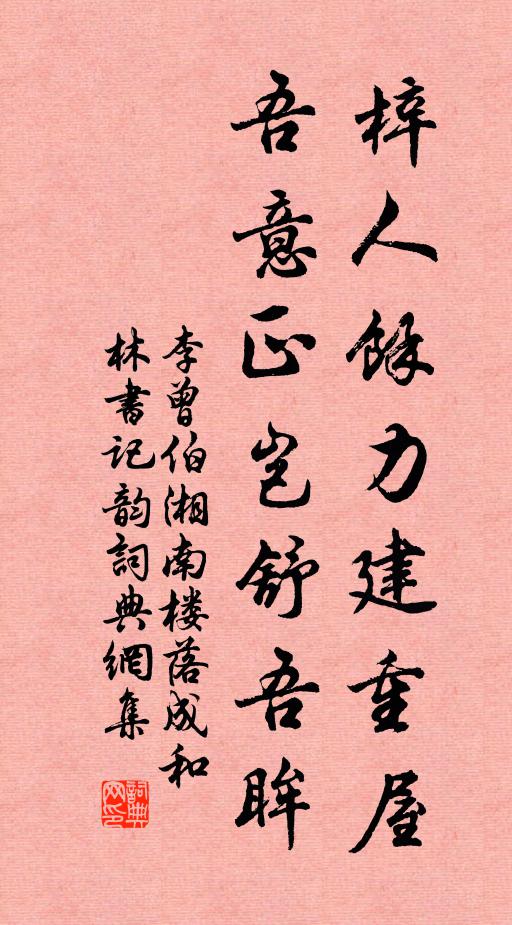 梓人餘力建重屋
吾意正岂舒吾眸
李曾伯湘南楼落成和
林書记韵詞典網集
詞典网印